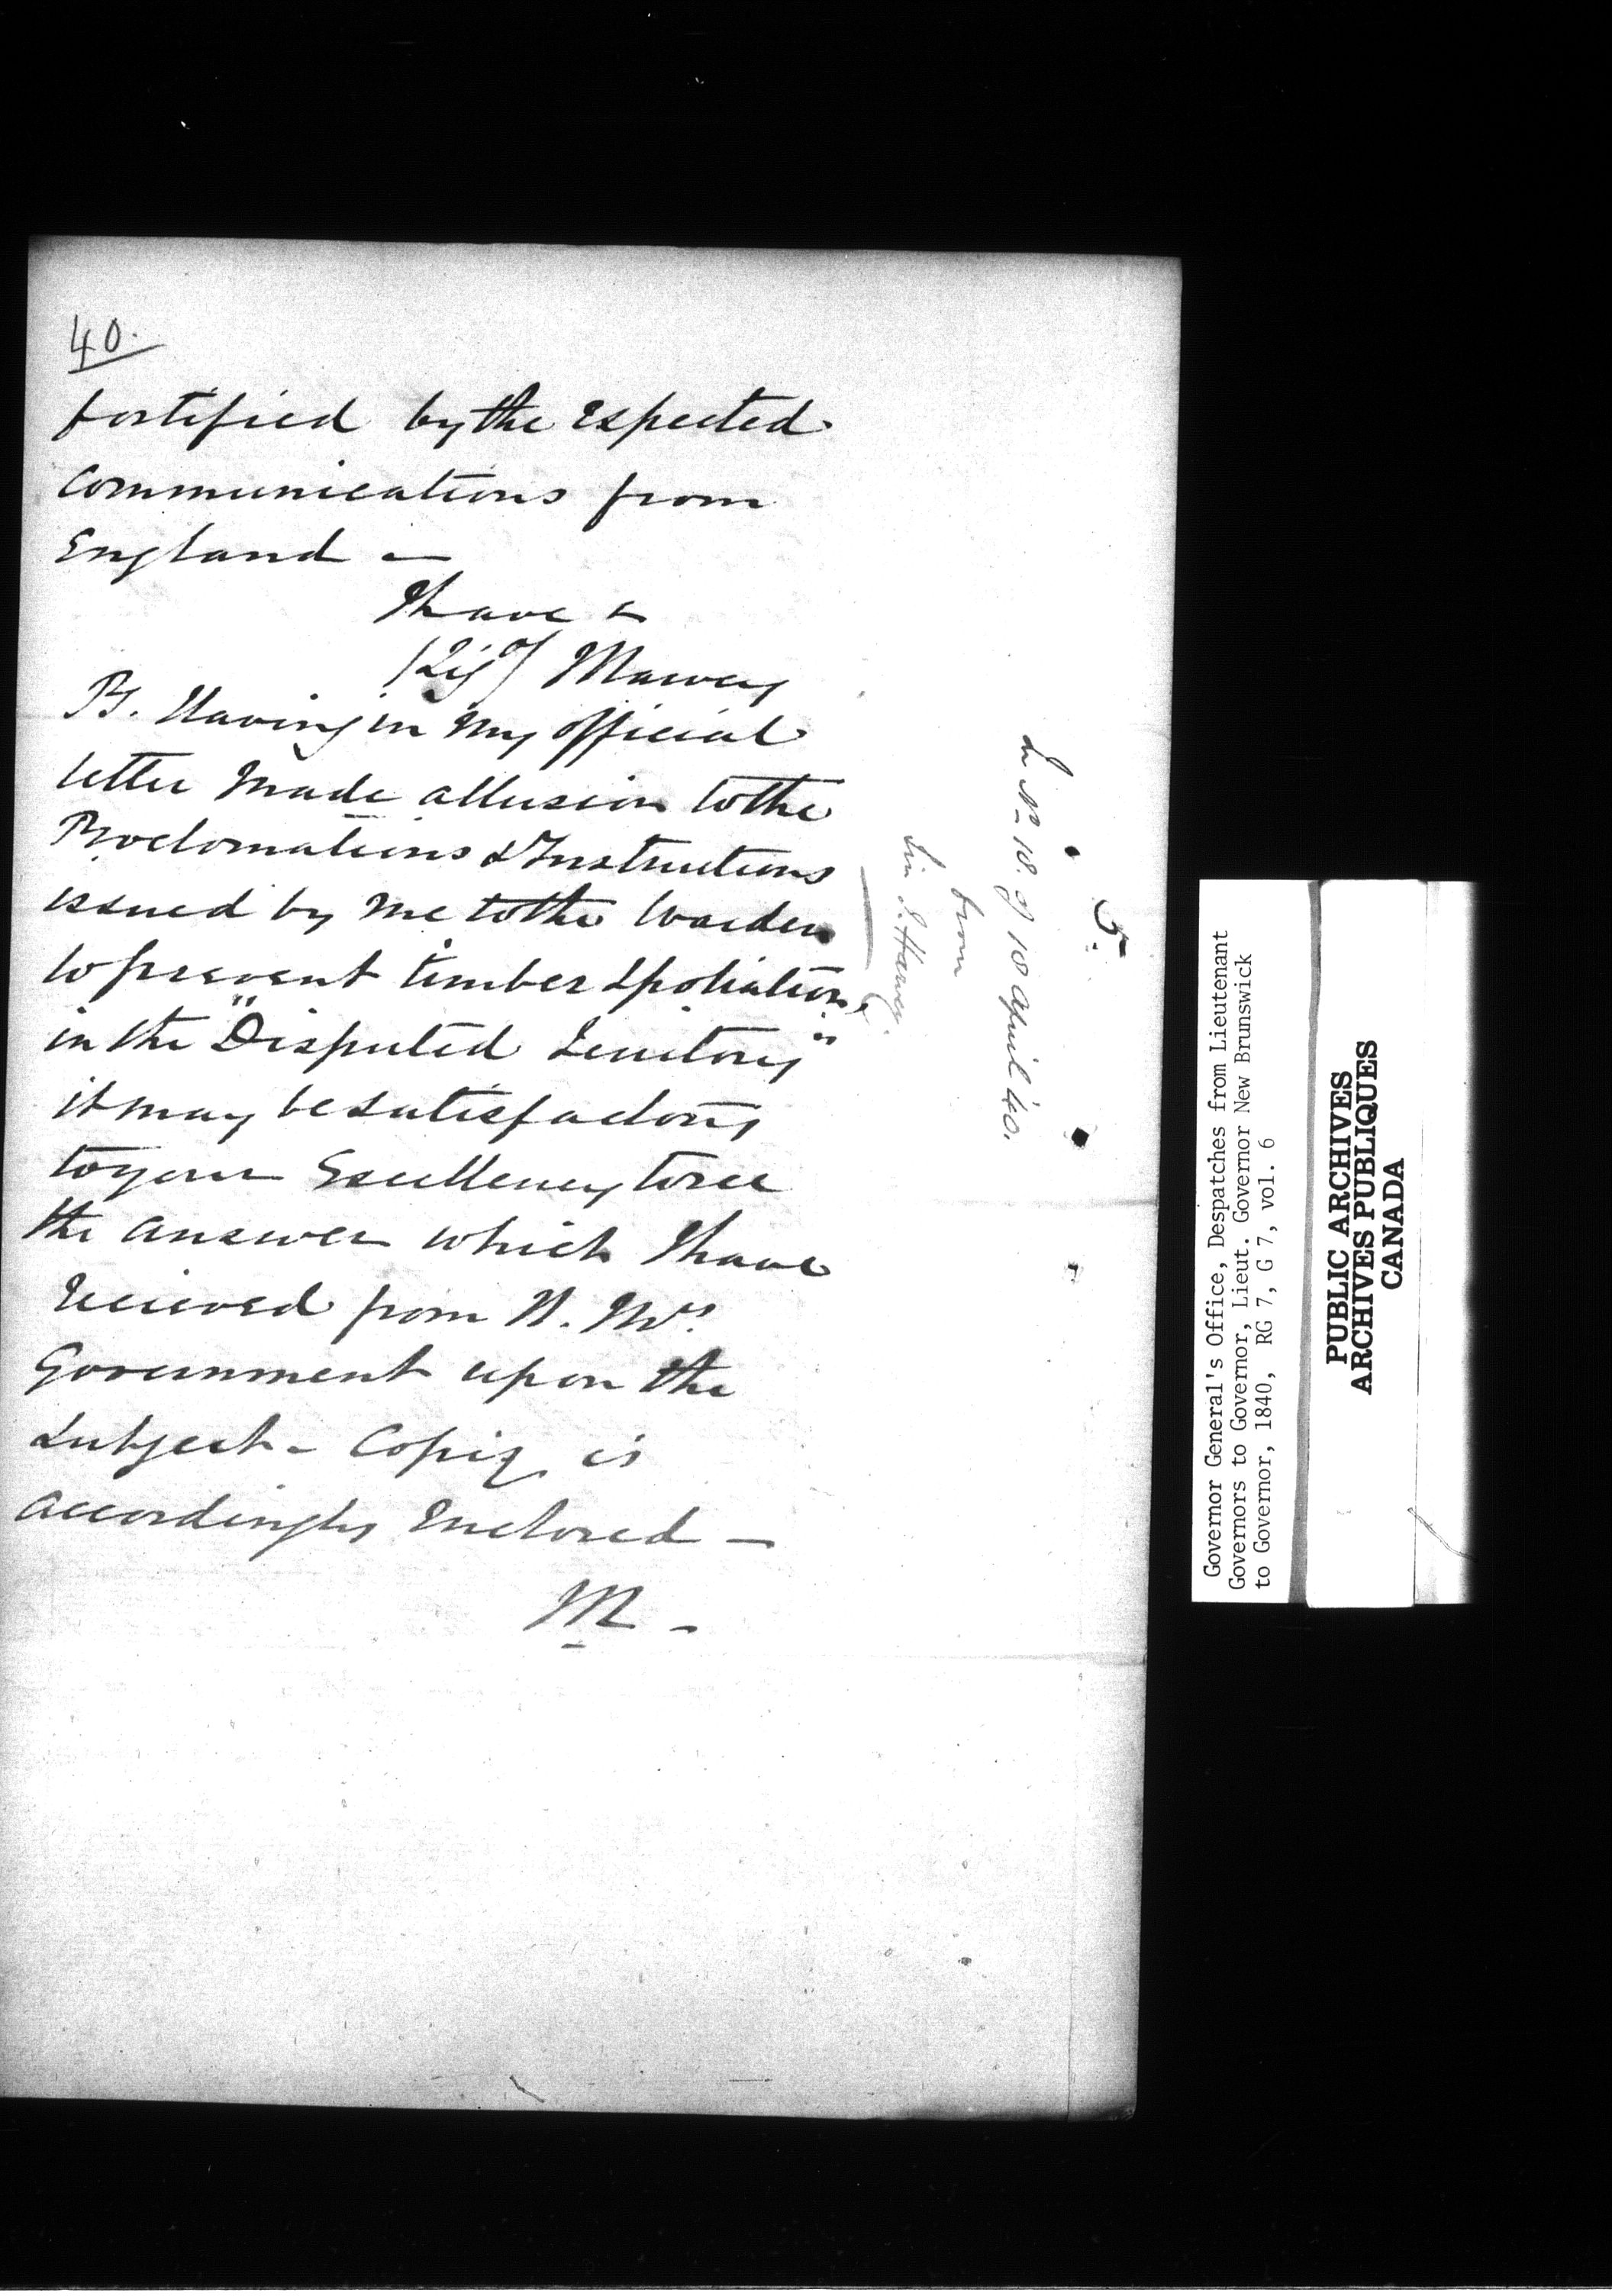 40.
fortified by the expected
communications from
England —
I have &
/Sigd/ J Harvey
PS. Having in my official
letter made allusion to the
Proclamations & Instructions
issued by me to the Warden
to prevent timber spoliation,
in the "Disputed Territory"
it may be satisfactory
to your Excellency to see
the answer which I have
received from H. M's.
Government upon the
subject - Copy is
accordingly Enclosed —
JH -
5.
In No 18. of 18 April 40.
from
Sir J. Harvey.
Governor General's Office, Despatches from Lieutenant
Governors to Governor, Lieut. Governor New Brunswick
to Governor, 1840, RG 7, G 7, vol. 6
PUBLIC ARCHIVES
ARCHIVES PUBLIQUES
CANADA